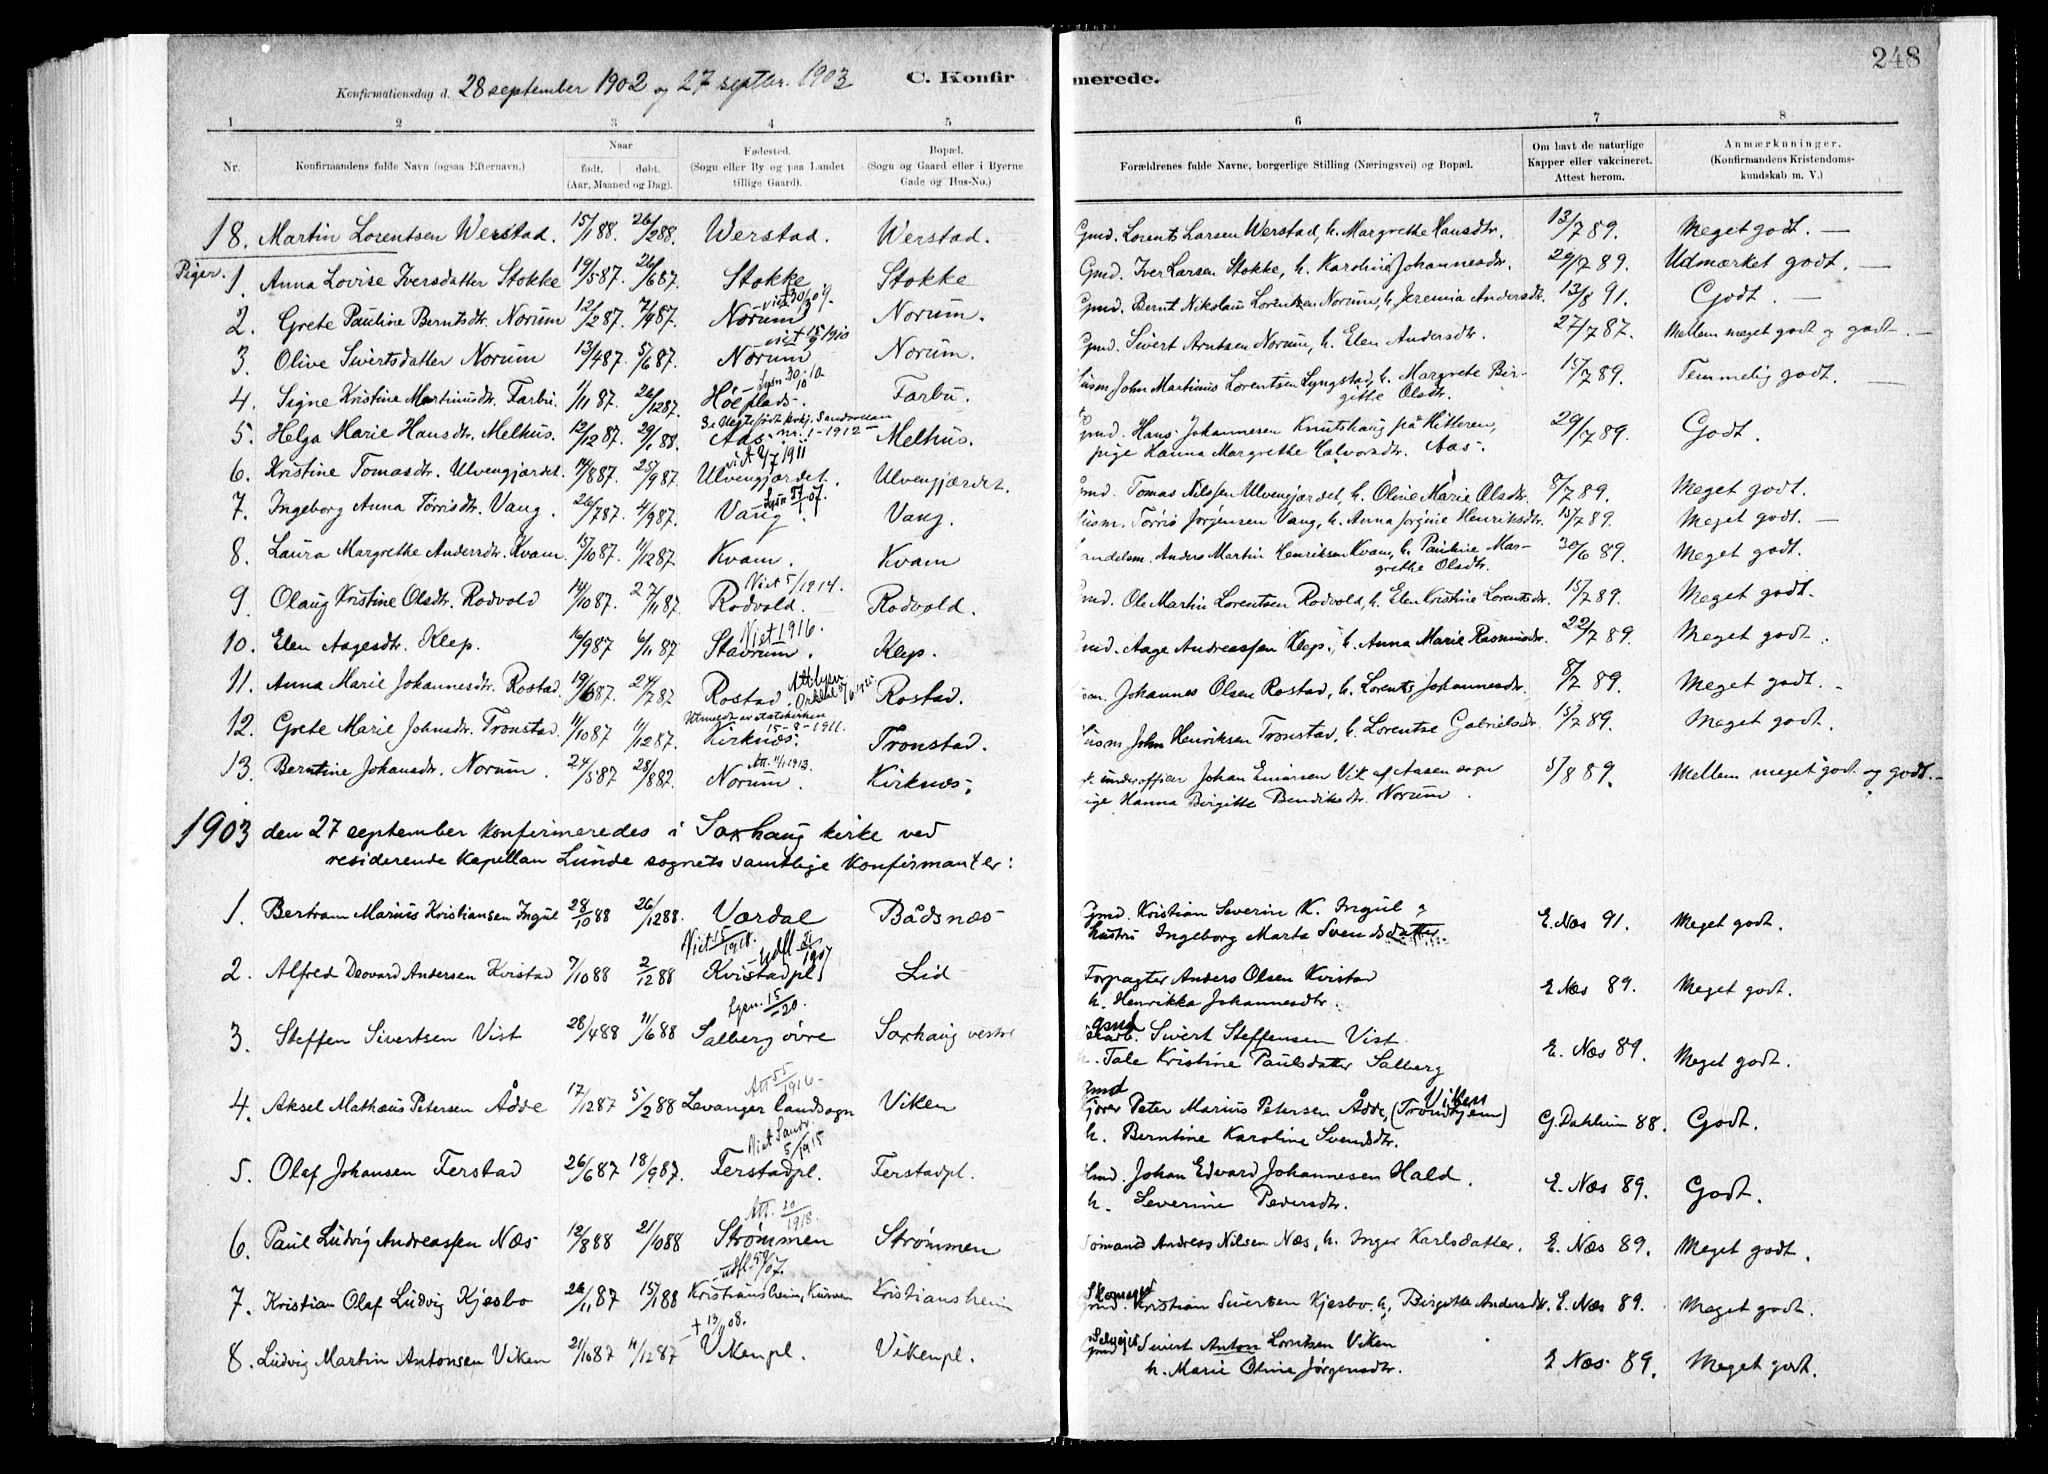 248
Konfirmationsdag d. 28 september 1902 og 27 septbr. 1903 C. Konfirmerede.
1 2 3 4 5 6 7 8
Nr. Konfirmandens fulde Navn (ogsaa Efternavn.) Naar født. døbt. (Aar, Maaned og Dag.) Fødested. (Sogn eller By og paa Landet tillige Gaard). Bopæl. (Sogn og Gaard eller i Byerne Gade og Hus-No.) Forældrenes fulde Navne, borgerlige Stilling (Næringsvei) og Bopæl. Om havt de naturlige Kapper eller vakcineret. Attest herom. Anmærkninger. (Konfirmandens Kristendomskundskab m. V.)
18. Martin Lorentsen Werstad. 15/1 88. 26/2 88. Werstad. Werstad. Gmd. Lorents Larsen Werstad, h. Margrethe Hansdtr. 13/7 89. Meget godt. —
Piger.
1. Anna Lovise Iversdatter Stokke 19/5 87. 26/6 87. Stokke Stokke Gmd. Iver Larsen Stokke, h. Karoline Johannesdtr. 29/7 89. Udmærket godt. —
2. Grete Pauline Berntsdtr. Norum 12/2 87. 7/4 87. Norum Norum. Gmd. Bernt Nikolaus Lorentsen Norum, h. Jeremia Andersdtr. 13/8 91. Godt. —
3. Olive Sivertsdatter Norum 13/4 87. 5/6 87. Norum Norum. Gmd. Sivert Arntsen Norum, h. Elen Andersdtr. 27/7 87. Mellem meget godt og godt. —
4. Signe Kristine Martinusdr. Farbu. 1/11 87. 26/12 87. Høeplads. Farbu. Husm John Martinus Lorentsen Lyngstad, h. Margrete Birgitte Olsdtr. 15/7 89. Temmelig godt. —
5. Helga Marie Hansdtr. Melhus. 12/12 87. 29/1 88. Aas. Melhus. Gmd. Hans Johannesen Knutshaug på Hitteren,
pige Hanna Margrethe Halvorsdtr. Aas. 29/7 89. Godt.
6. Kristine Tomasdtr. Ulvengjærdet. 14/8 87. 25/9 87. viet 2/7 1911 Ulvengjærdet. Ulvengjærdet. Gmd. Tomas Nilssen Ulvengjærdet, h. Oline Marie Olsdtr. 8/7 89. Meget godt.
7. Ingeborg Anna Tørrisdtr. Vang. 26/7 87. 4/9 87. Vang. Vang. Husm. Tørris Jørgensen Vang, h. Anna Jørgine Henriksdtr. 15/7 89. Meget godt. —
8. Laura Margrethe Andersdtr. Kvam. 15/10 87. 11/12 87. Kvam. Kvam Handelsm. Anders Martin Henriksen Kvam, h. Pauline Margrethe Olsdtr. 30/6 89. Meget godt.
9. Olaug Kristine Olsdtr. Rodvold 14/10 87. 27/11 87. Viet 5/1914. Rodvold. Rodvold. Gmd. Ole Martin Lorentsen Rodvold, h. Elen Kristine Lorentsdtr. 15/7 89. Meget godt.
10. Elen Aagesdtr. Klep. 16/9 87 6/11 87 Viet 1916. Stavrum. Klep. Gmd. Aage Andreassen Klep, h. Anna Marie Rasmusdtr. 22/7 89. Meget godt.
11. Anna Marie Johannesdtr. Rostad. 19/6 87. 24/7 87 Rostad. Rostad. Johannes Olsen Rostad, h. Lorents Johannesdtr. 8/7 89. Meget godt.
12. Grete Marie Johnsdtr. Tronstad. 11/10 87 11/12 87. Utmeldt av statskirken 15-8-1911. Kirknes. Tronstad. Husm John Henriksen Tronstad, h. Lorentse Gabrielsdtr. 15/7 89. Meget godt.
13. Berntine Johansdtr. Norum. 24/5 87. 28/8 82. Att. 11/1 1913. Norum. Kirknes. underofficer Johan Einarsen Vik af Aasen sogn
pige Hanna Birgitte Bendiksdtr. Norum. 5/8 89. Mellem meget godt og godt. —
1903 den 27 september konfirmeredes i Saxhaug kirke ved
residerende kapellan Lunde sognets samtlige konfirmanter:
1. Bertram Marius Kristiansen Ingul 28/10 88 26/12 88. Værdal Bådsnes Gmd. Kristian Severin K. Ingul og
hustru Ingeborg Marta Svendsdatter. E. Næs 91. Meget godt.
2. Alfred Deovard Andersen Kvistad 7/10 88 2/12 88 Viet 15/1918. Kvistadpl. Lid Forpagter Anders Olsen Kvistad
h. Henrikka Johannesdtr. E. Næs 89. Meget godt.
3. Steffen Sivertsen Vist 28/4 88 11/6 88 Salberg øvre Saxhaug vestre Sivert Steffensen Vist
h. Tale Kristine Paulsdatter Salberg E. Næs 89. Meget godt.
4. Aksel Mathæus Petersen Ådde 17/12 87 5/2 88 Levanger landsogn Viken Peter Marius Petersen Ådde, (Trondhjem) Viken
h. Berntine Karoline Svendsdtr. G. Dahlum 88. Godt.
5. Olaf Johansen Ferstad 26/6 87 18/9 87. Viet Sandv. 5/1915 Ferstadpl. Ferstadpl. Johan Edvard Johannesen Hald.
h. Severine Pedersdtr. E. Næs 89. Godt.
6. Paul Ludvig Andreassen Næs 12/8 88 21/10 88 Att. 20/1918. Strømmen Strømmen Sømand Andreas Nilsen Næs, h. Inger Karlsdatter. E. Næs 89. Meget godt.
7. Kristian Olaf Ludvig Kjesbo 26/11 87 15/1 88 Kristiansheim, Kursven Kristiansheim Skomager Kristian Sivertsen Kjesbo, h. Birgitte Andersdtr. E. Næs 89. Meget godt.
8. Ludvig Martin Antonsen Viken 21/10 87 11/12 87 + 13/11 08. Vikenpl. Vikenpl. Selveier Gmd Sivert Anton Lorntsen Viken
h. Marie Oline Jørgensdtr. E. Næs 89. Meget godt.